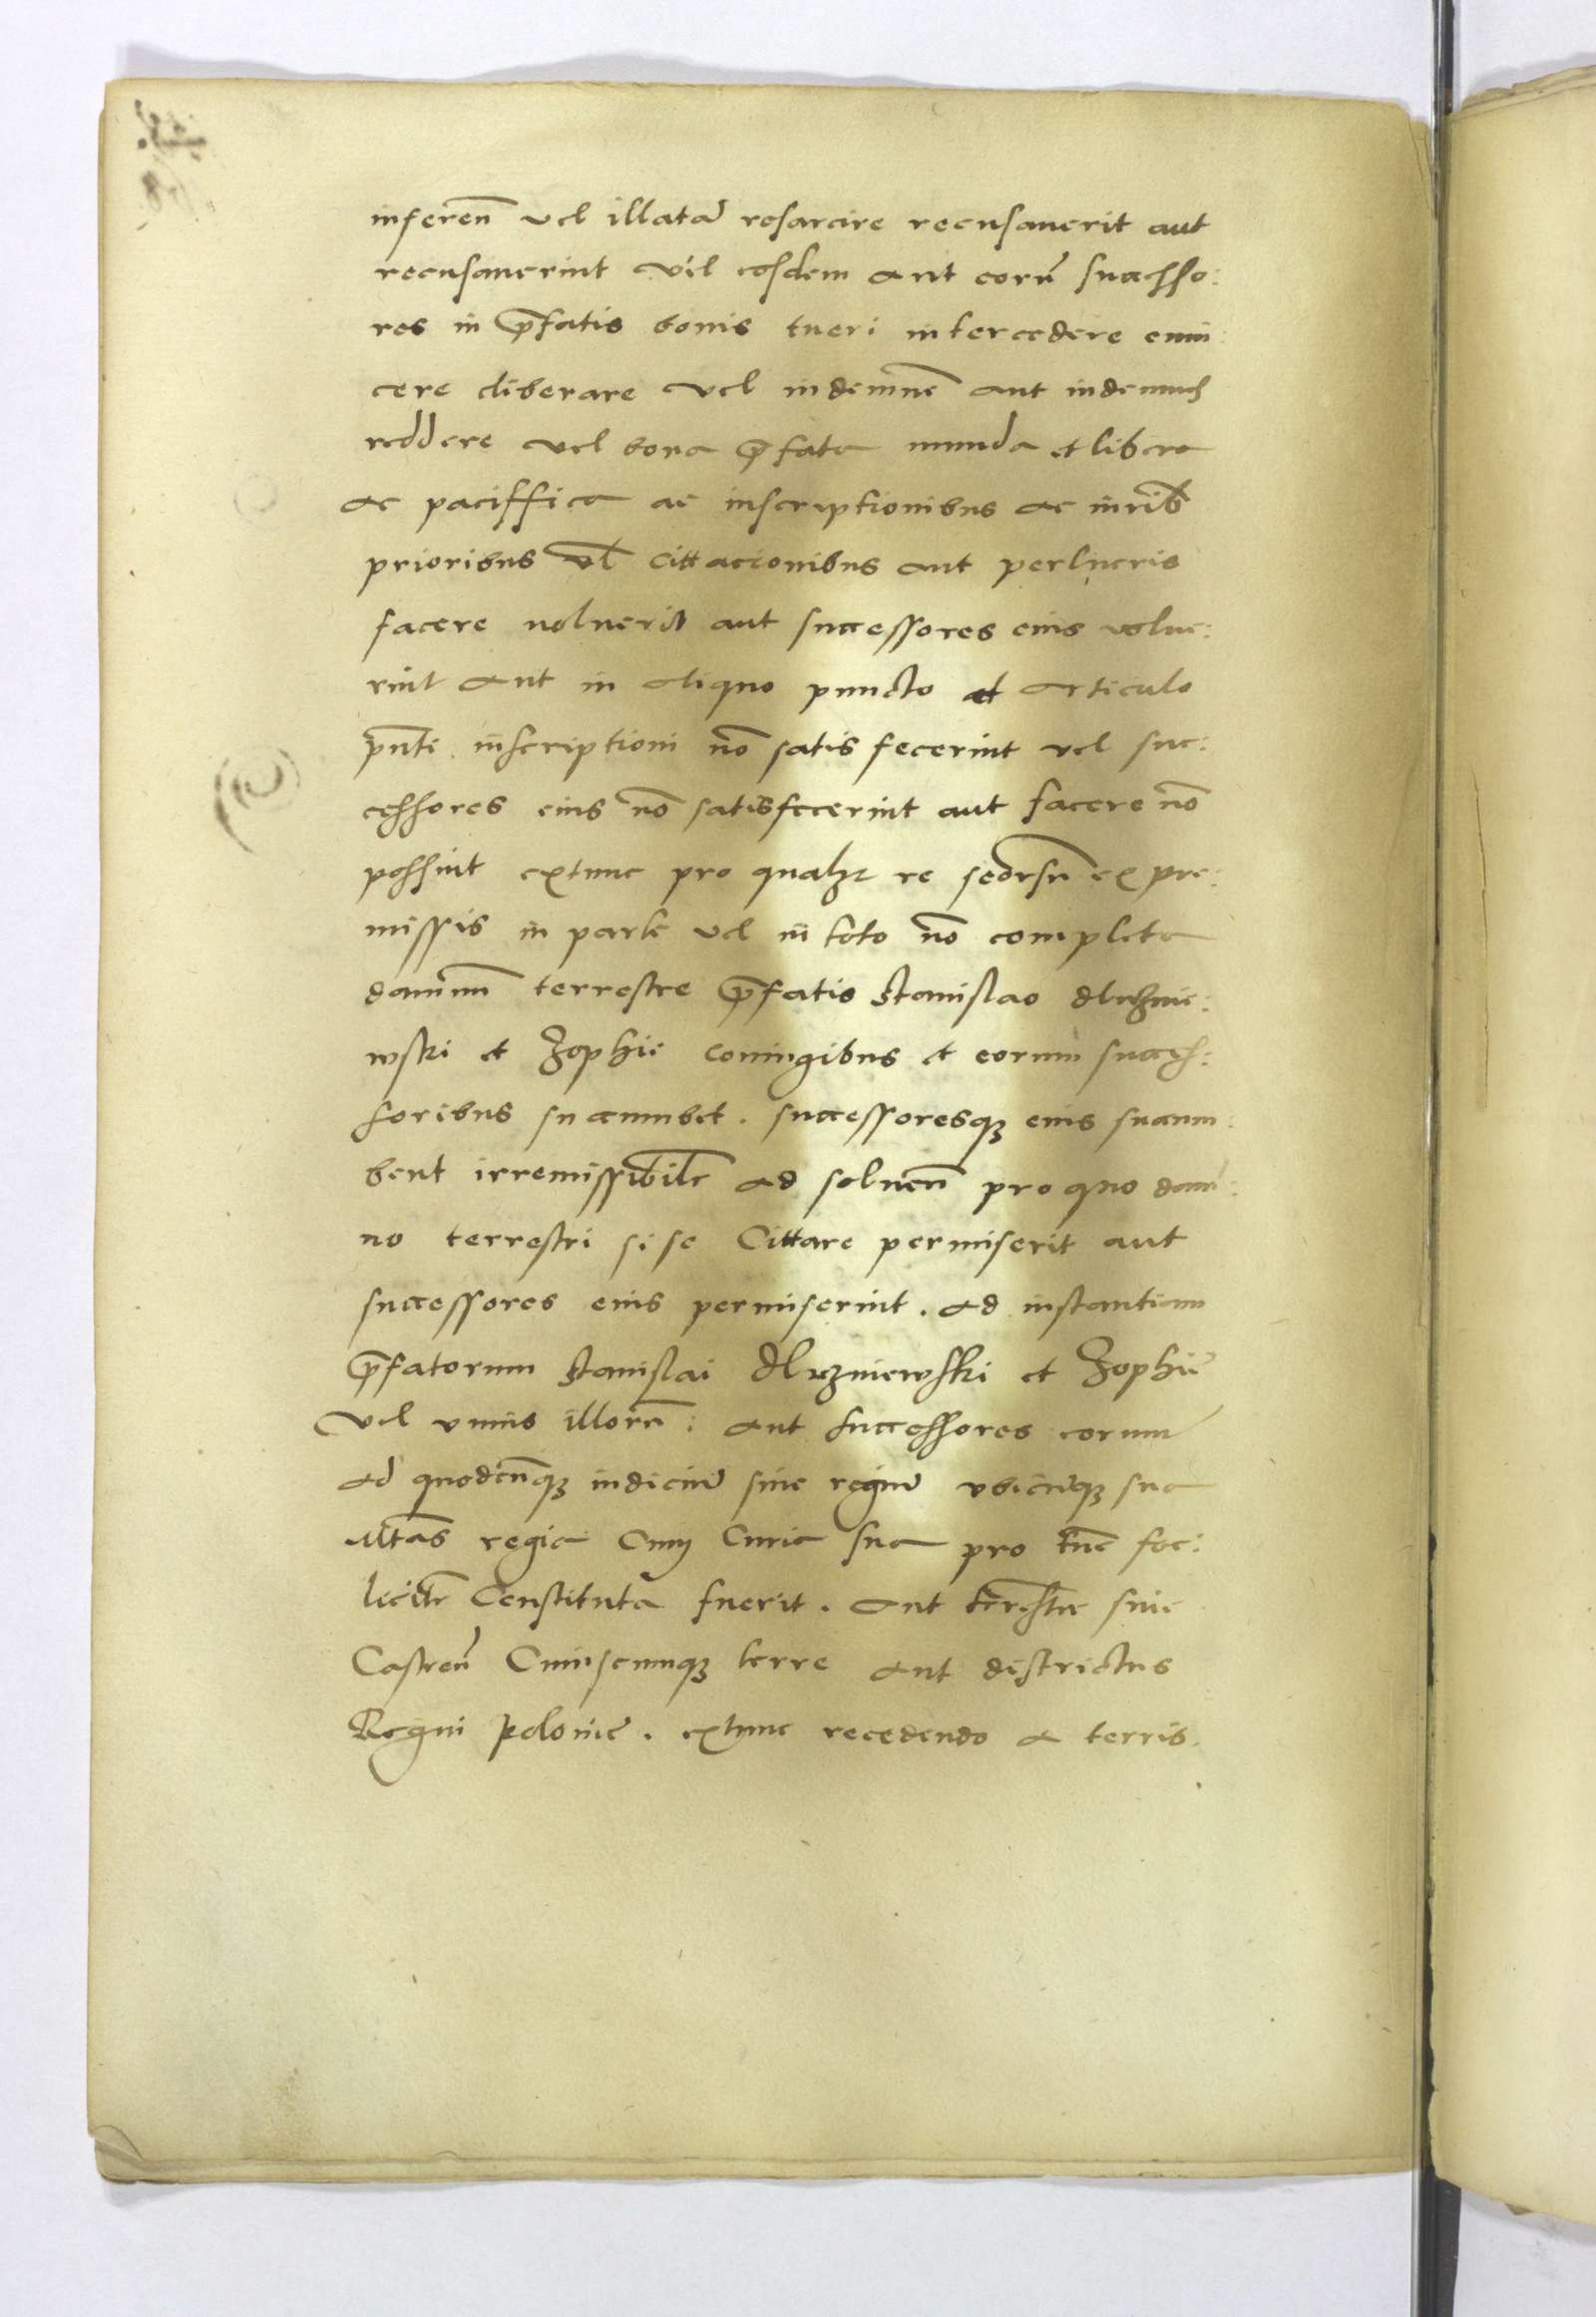 inferen̄ vel illatā resarcire recusauerit aut
recusauerint vel eosdem aut eorū successo:
res in p̄fatis bonis tueri intercedere euin:
cere liberare vel indemnē aut indemnes
reddere vel bona p̄fata munda et libera
ac paciffica ac inscriptionibus ac iurib
prioribus vl cittacionibus aut perlucris
facere noluerit aut successores eius nolue:
rint aut in aliquo puncto et articulo
pn̄ti inscriptioni nō satis fecerint vel suc:
cessores eius nō satisfecerint aut facere nō
possint extunc pro qualz re seorsū ex pre:
missis in parte vel in toto nō completa
damnum terrestre p̄fatis Stanislao dluznie:
wski et Zophie coniugibus et eorum succes:
soribus succumbet . successoresqz eius succum:
bent irremissibilr ad soluen̄ pro quo dam:
no terrestri si se Cittare permiserit aut
successores eius permiserint . ad instantiam
p̄fatorum Stanislai dluzniewski et Zophie
vel vnius illorū : aut successores eorum
ad quodcūqz iudiciū siue regiū vbicūqz sua
Mtas regia Cum Curia sua pro tūc foe:
licitr Constituta fuerit . aut trrestre siue
Castren̄ Cuiuscumqz terre aut districtus
Regni Polonie . extunc recedendo a terris